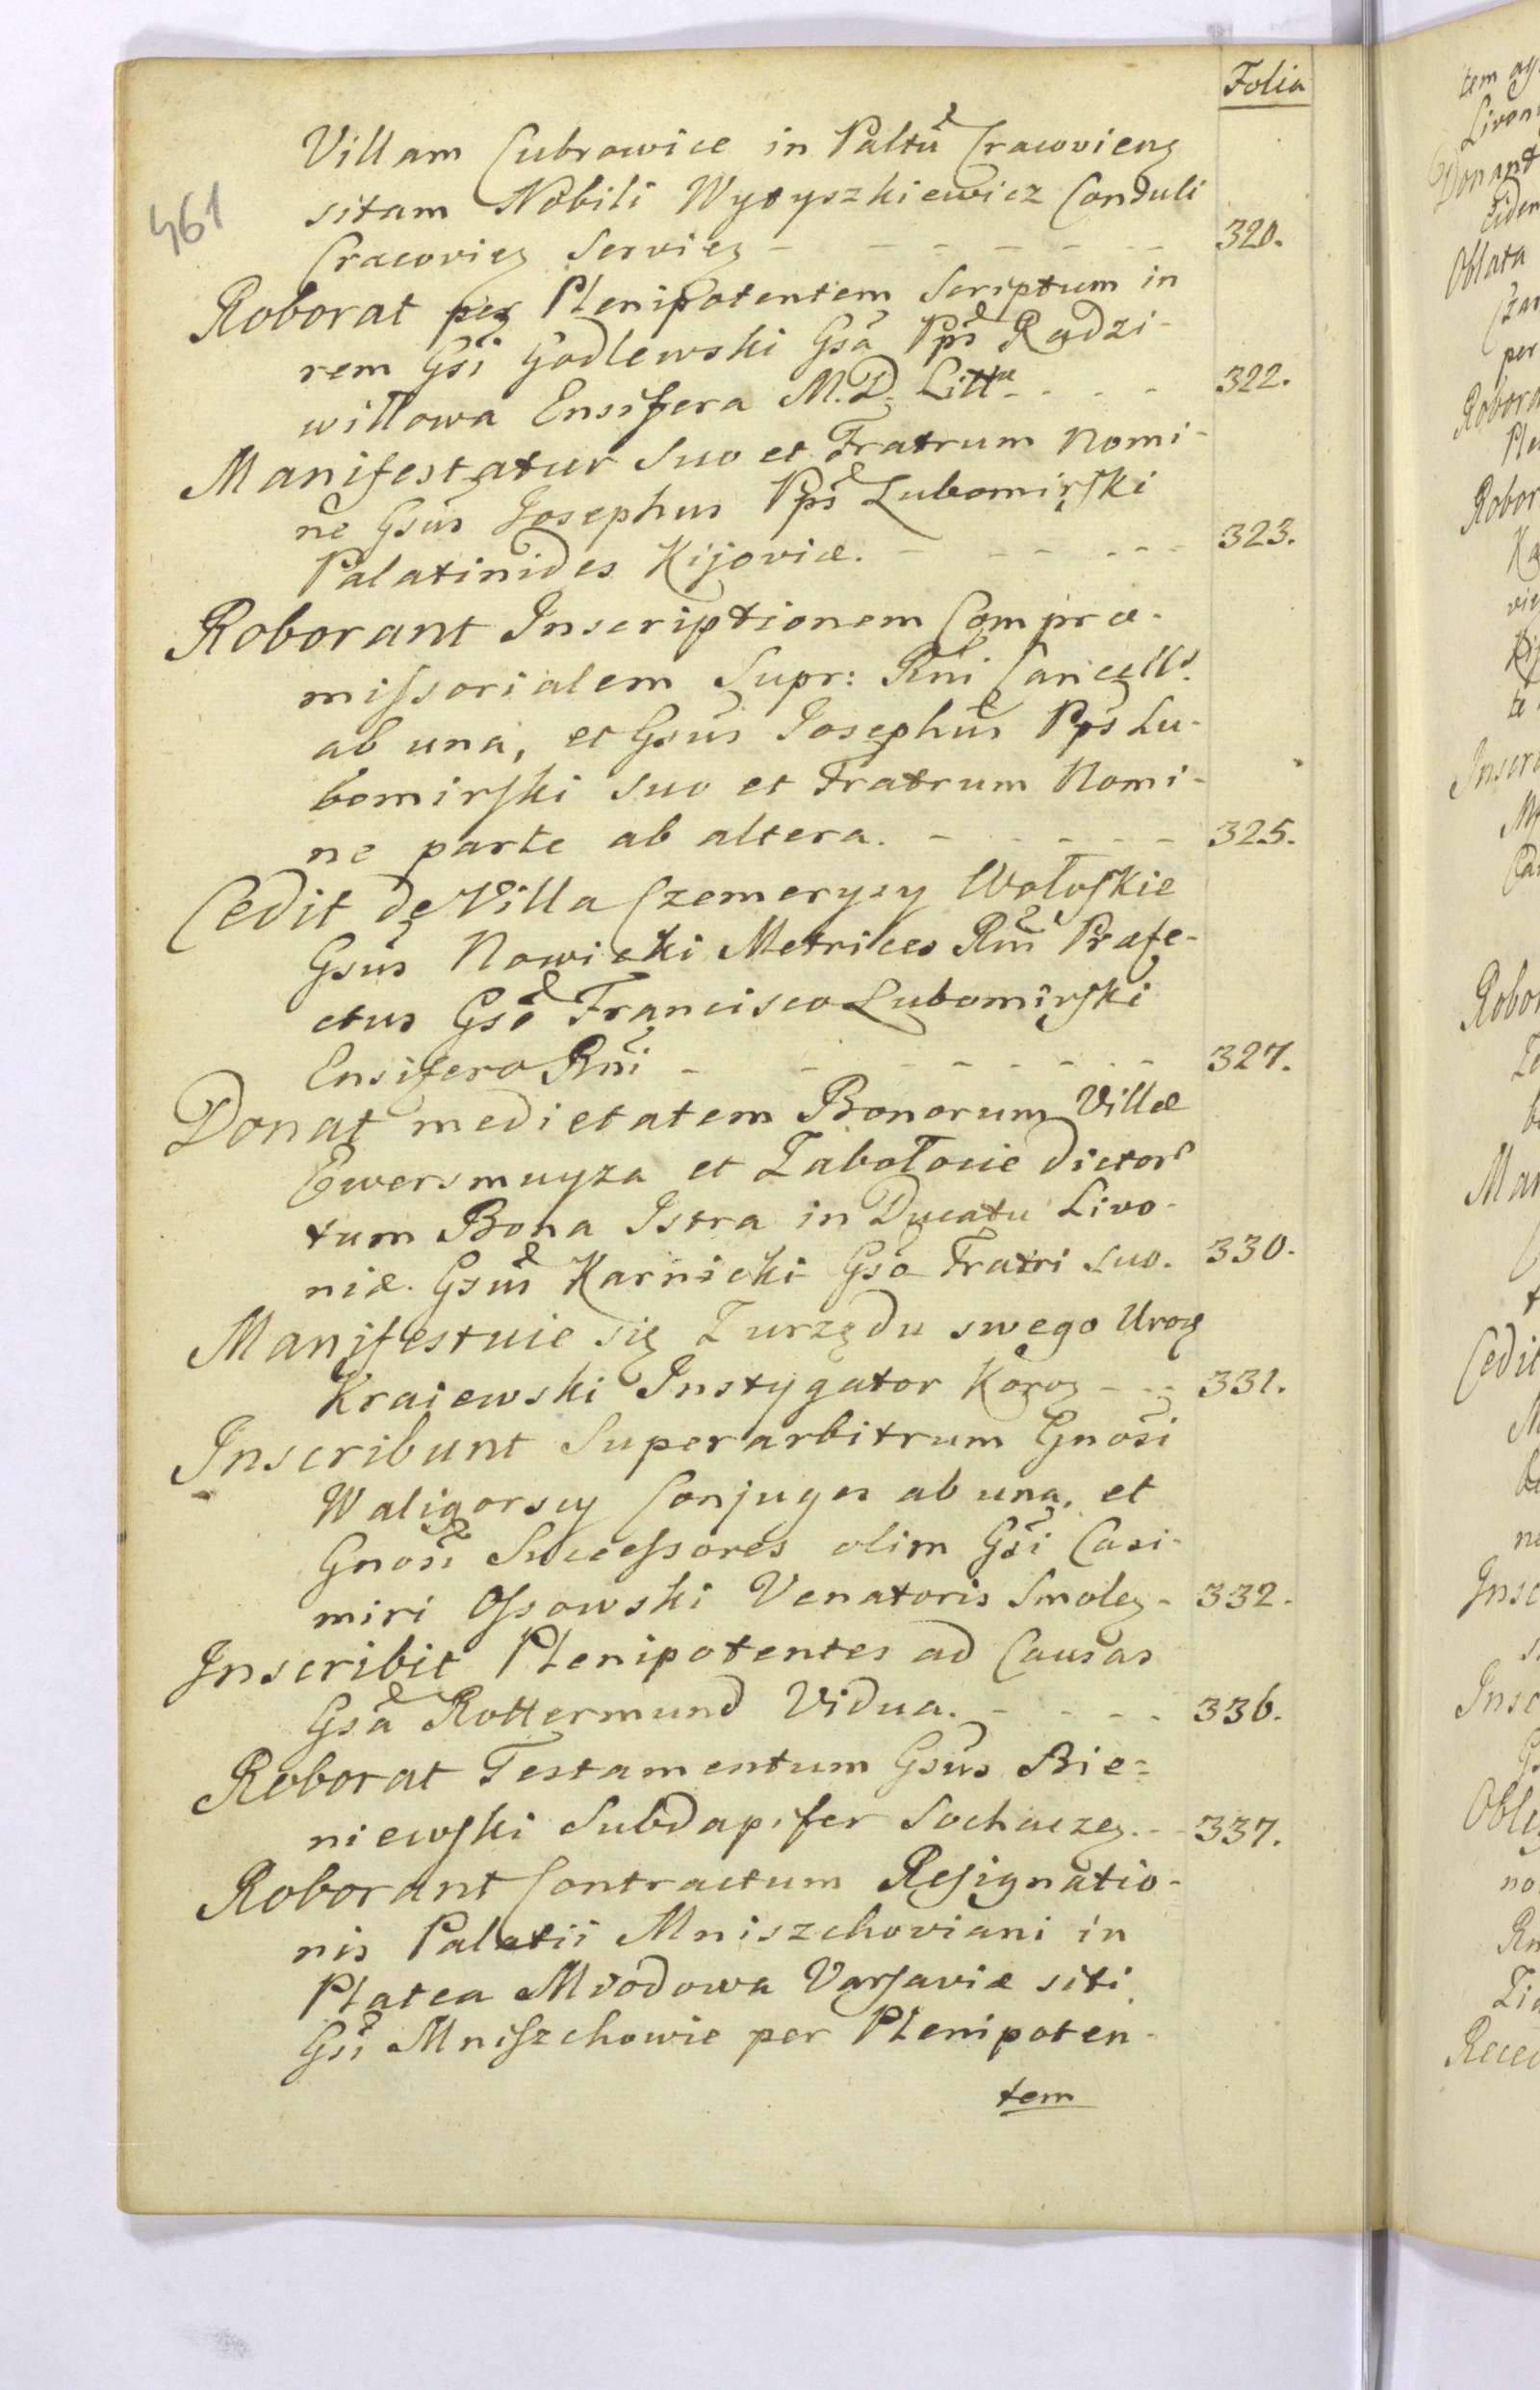 Folia
461
Villam Cubrowice in Paltũ Cracovieng
sitam Nobili Wytyszkiewicz Consuli
Cracovieg Servieg - - - - - - - 320.
Roborat per Plenipotentem Scriptum in
rem Gsi Godlewski Gsã Ppŝ Radzi-
willowa Ensifera M.D. Littu - - - - 322.
Manifestatur suo et Fratrum Nomi-
ne Gsus Josephus Pps Lubomirski
Palatinides Kijoviæ. - - - - - - 323.
Roborant Inscriptionem Compro-
missorialem Supr: Rni Cancell.
ab una, et Gsus Josephus Pps Lu-
bomirski suo et Fratrum Nomi-
ne parte ab altera. - - - - - - 325.
Cedit de Villa Czemerysy Wołoskie
Gsus Nowicki Metrices Rni Præfe-
ctus Gsõ Francisco Lubomirski
Ensifero Rni - - - - - - - - 327.
Donat medietatem Bonorum Villæ
Ewersmuyza et Zabołocie dictor
tum Bona Istra in Ducatu Livo-
niæ. Gsus Karnicki Gso Fratri suo. 330.
Manifestuie się Z urzędu swego Urog
Kraiewski Instygator Korog - - - 331.
Inscribunt Superarbitrum Gnosi
Waligorscy Conjuges ab una, et
Gnosi Successores olim Gsi Casi-
miri Ossowski Venatoris Smoleg - 332.
Inscribit Plenipotentes ad Causas
Gsa Rottermund Vidua. - - - - - 336.
Roborat Testamentum Gsus Bie-
niewski Subdapifer Sochaczeg. - - 337.
Roborant Contractum Resignatio-
nis Palatii Mniszchoviani in
Platea Miodowa Varsaviæ siti
Gsi Mniszchowie per Plenipoten-
tem